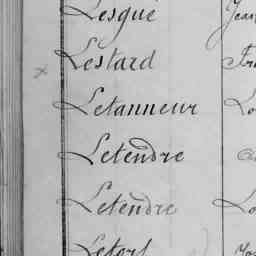 Lesgué Jean
x Lestard
Letanneur
Letendre
Letendre
Letort